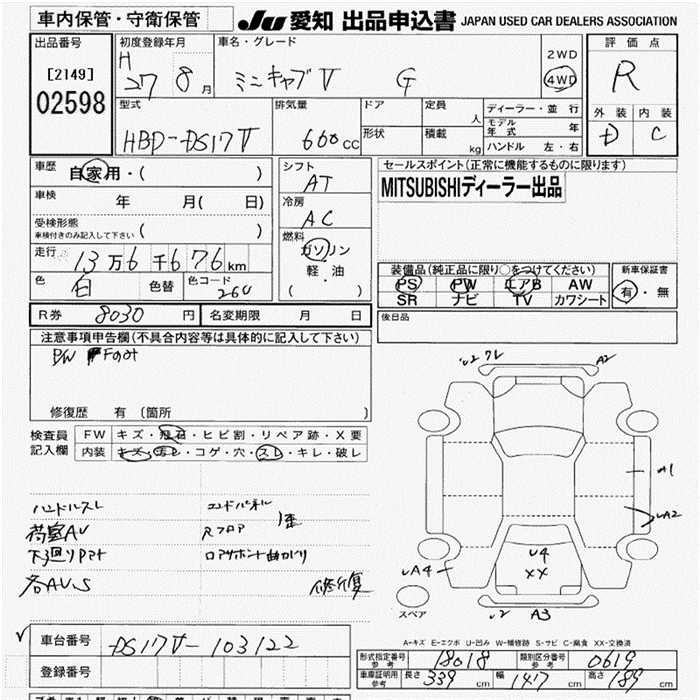 車内保管・守衛保管
JU 愛知 出品申込書 JAPAN USED CAR DEALERS ASSOCIATION
出品番号
[2149]
02598
初度登録年月
H
27 8月
車名・グレード
ミニキャブV G
2WD
4WD
評価点
R
外装 内装
D C
型式
HBD-DS17V
排気量
660cc
ドア
形状
定員 人
積載 kg
ディーラー・並行
モデル年式 年
ハンドル 左・右
車歴 自家用・( )
車検 年 月( 日)
受検形態
車検付きのみ記入して下さい ( )
走行 13万6千676km
色 白 色替 色コード 26U
シフト
AT
冷房
AC
燃料
ガソリン
軽・油
( )
セールスポイント(正常に機能するものに限ります)
MITSUBISHIディーラー出品
装備品(純正品に限り○をつけてください)
PS PW エアB AW
SR ナビ TV カワシート
新車保証書
有・無
R券 8030円 名変期限 月 日
後日品
注意事項申告欄(不具合内容等は具体的に記入して下さい)
修復歴 有 (箇所 )
検査員
記入欄
FW キズ・飛石・ヒビ割・リペア跡・X要
内装 キズ・汚レ・コゲ・穴・スレ・キレ・破レ
ハンドルスレ
荷室AU
各AU.S
エンドパネル
Rフロア
修復
A2
A1
UA2
U4
XX
UA4
U2 A3
スペア
A-キズ E-エクボ U-凹み W-補修跡 S-サビ C-腐食 XX-交換済
車台番号 DS17V-103122
登録番号
形式指定番号 参考 18018 類別区分番号 参考 0619
車庫証明用 参考 長さ 339cm 幅 147cm 高さ 189cm